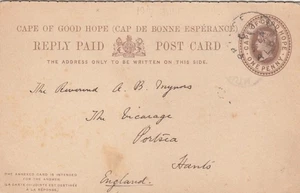 CAPE OF GOOD HOPE (CAP DE BONNE ESPÉRANCE)
REPLY PAID POST CARD
THE ADDRESS ONLY TO BE WRITTEN ON THIS SIDE.
OF GOOD HOPE
ONE PENNY
The Reverend A. B.
The Vicarage
Portsea
Hants
England.
THE ANNEXED CARD IS INTENDED
FOR THE ANSWER.
LA CARTE CI-JOINTE EST DESTINÉE
À LA RÉPONSE.